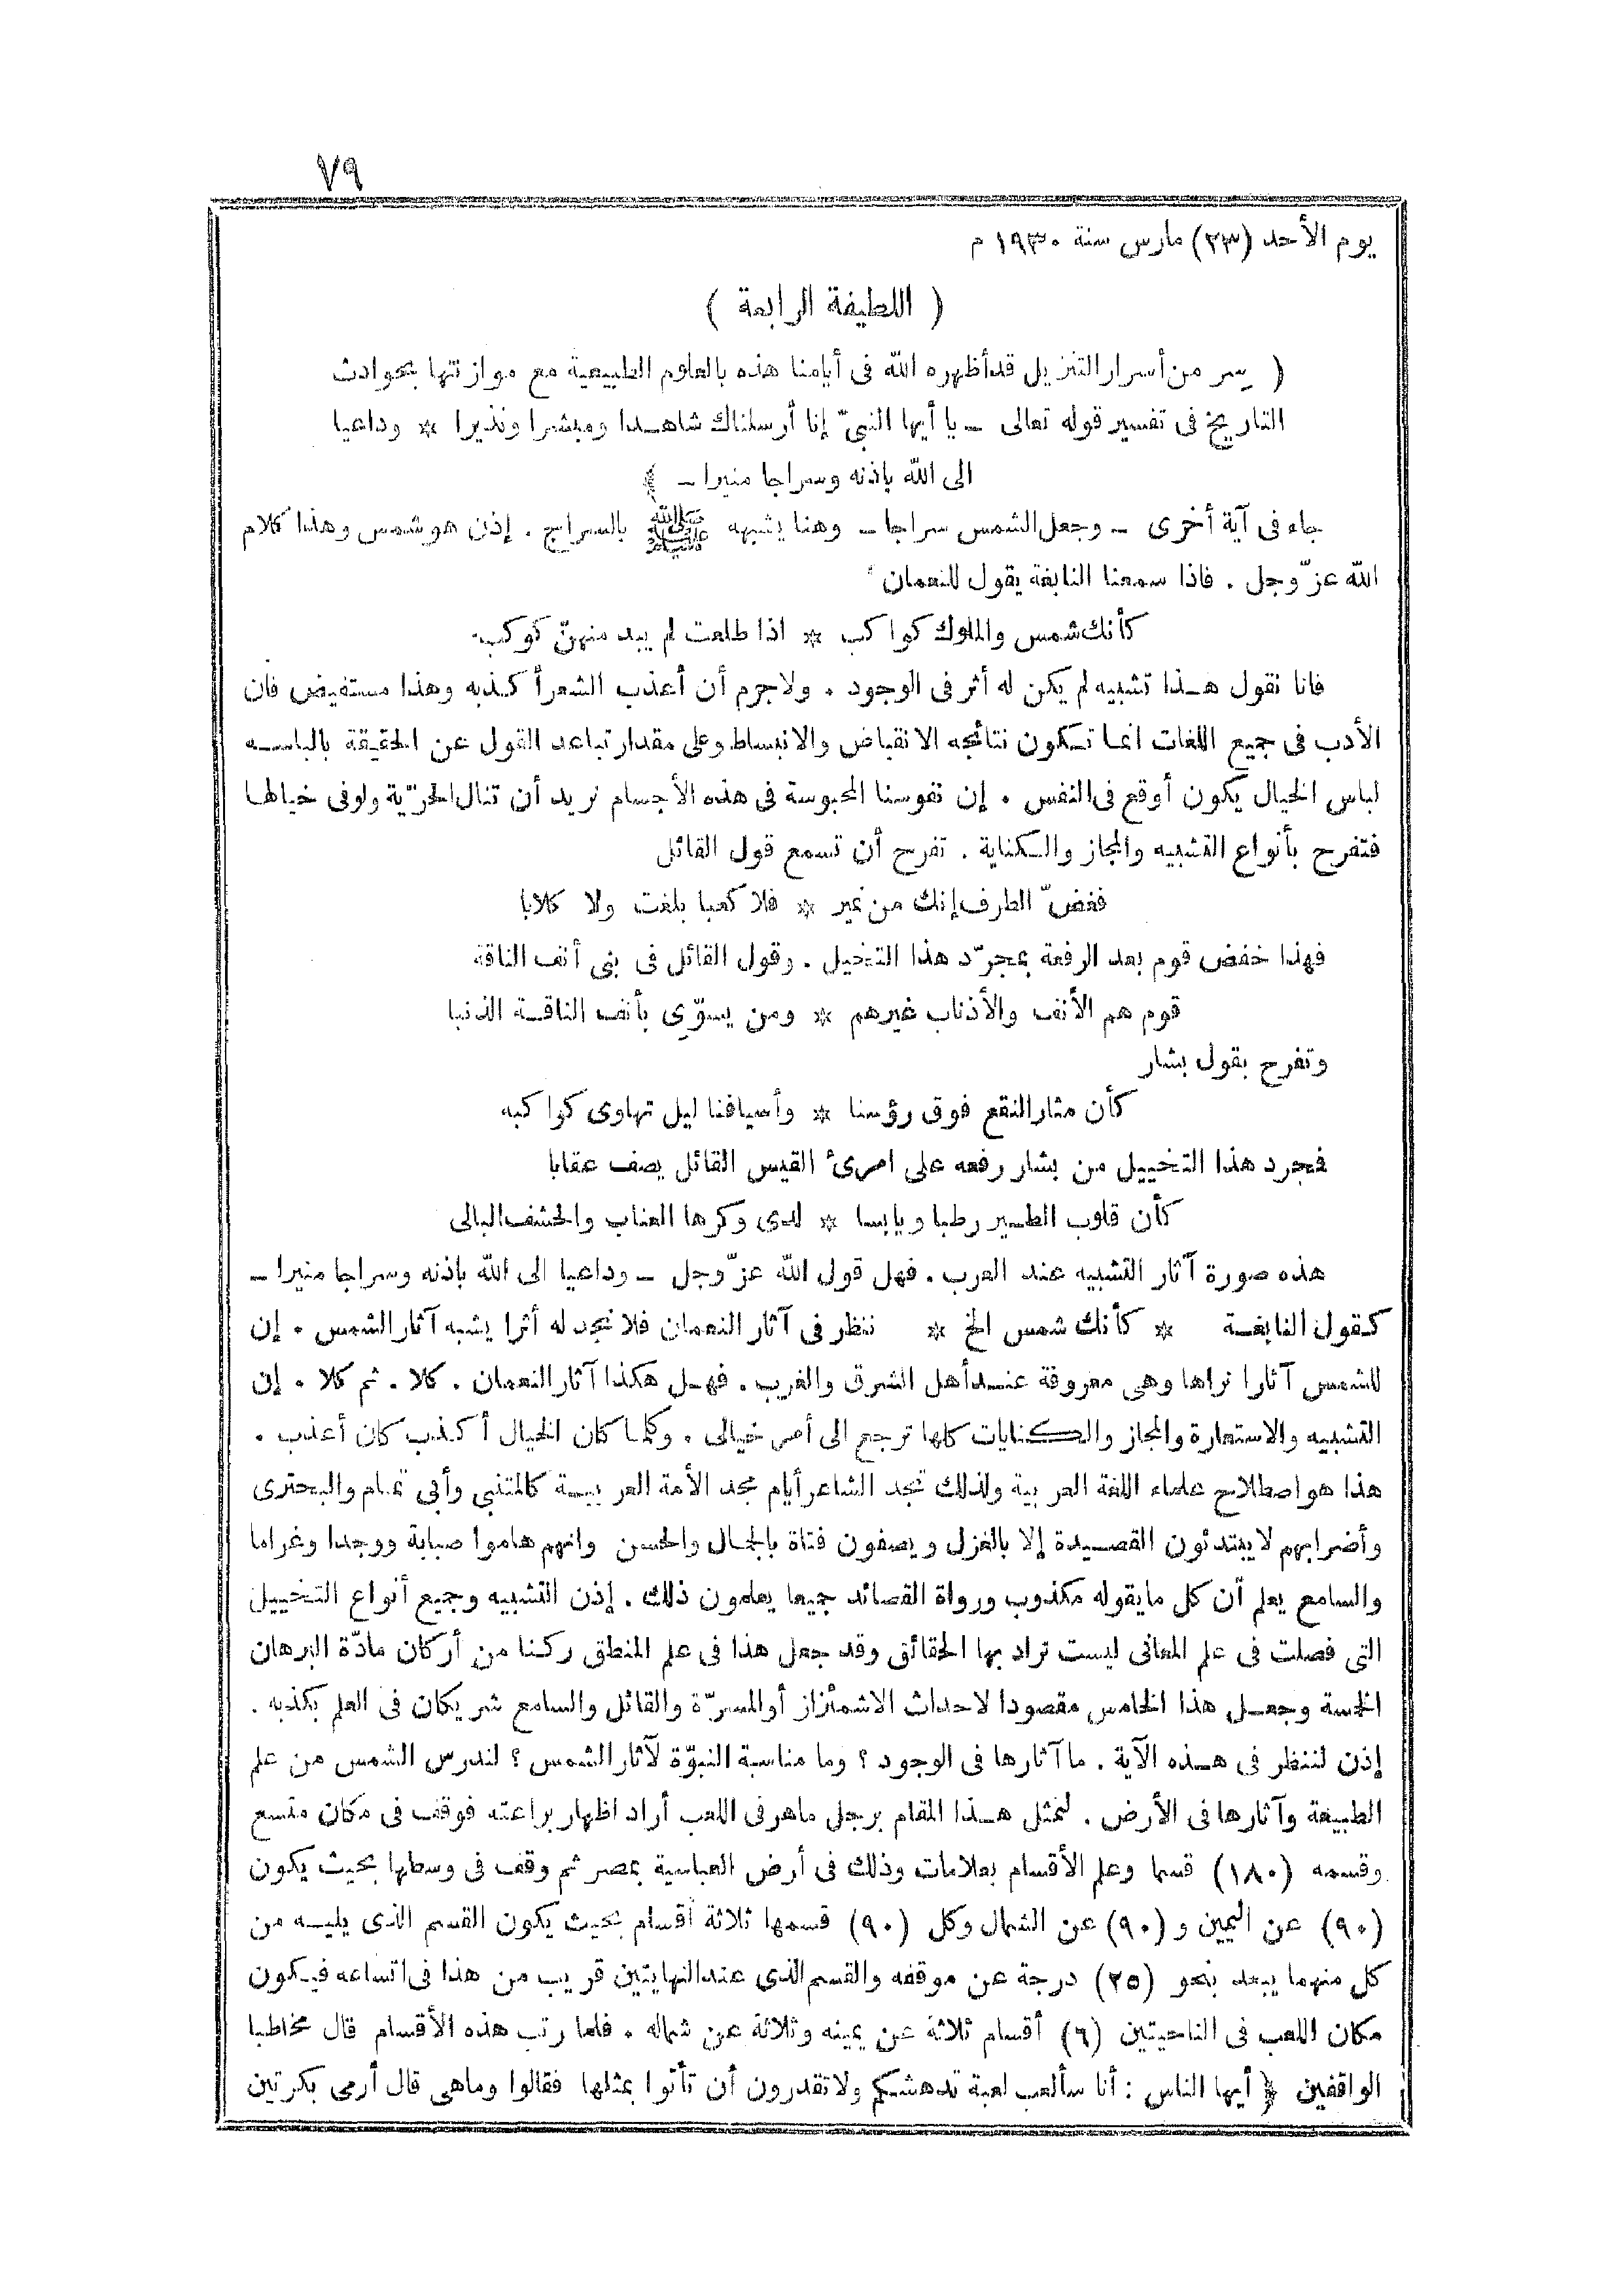 ٧٩
يوم الأحد (٢٣) مارس سنة ١٩٣٠ م
( اللطيفة الرابعة )
( سر من أسرار التنزيل قد أظهره الله فى أيامنا هذه بالعلوم الطبيعية مع موازنتها بحوادث
التاريخ فى تفسير قوله تعالى ـ يا أيها النبىّ إنا أرسلناك شاهدا ومبشرا ونذيرا * وداعيا
الى الله باذنه وسراجا منيرا ـ )
جاء فى آية أخرى ـ وجعل الشمس سراجا ـ وهنا يشبهه ﷺ بالسراج . إذن هو شمس وهذا كلام
الله عزّ وجل . فاذا سمعنا النابغة يقول للنعمان
كأنك شمس والملوك كواكب * اذا طلعت لم يبد منهنّ كوكب
فانا نقول هذا تشبيه لم يكن له أثر فى الوجود . ولاجرم أن أعذب الشعر أكذبه وهذا مستفيض فان
الأدب فى جميع اللغات انما تكون نتائجه الانقباض والانبساط وعلى مقدار تباعد القول عن الحقيقة بالباسه
لباس الخيال يكون أوقع فى النفس . إن نفوسنا المحبوسة فى هذه الأجسام تريد أن تنال الحرّية ولو فى خيالها
فتفرح بأنواع التشبيه والمجاز والكناية . تفرح أن تسمع قول القائل
فغضّ الطرف إنك من نمير * فلا كعبا بلغت ولا كلابا
فهذا خفض قوم بعد الرفعة بمجرّد هذا التخيل . وقول القائل فى بنى أنف الناقة
قوم هم الأنف والأذناب غيرهم * ومن يسوّى بأنف الناقة الذنبا
وتفرح بقول بشار
كأن مثار النقع فوق رؤسنا * وأسيافنا ليل تهاوى كواكبه
فمجرد هذا التخييل من بشار رفعه على امرئ القيس القائل يصف عقابا
كأن قلوب الطير رطبا ويابسا * لدى وكرها العناب والحشف البالى
هذه صورة آثار التشبيه عند العرب . فهل قول الله عزّ وجل ـ وداعيا الى الله باذنه وسراجا منيرا ـ
كقول النابغة * كأنك شمس الخ * ننظر فى آثار النعمان فلا نجد له أثرا يشبه آثار الشمس . إن
للشمس آثارا نراها وهى معروفة عند أهل الشرق والغرب . فهل هكذا آثار النعمان . كلا . ثم كلا . إن
التشبيه والاستعارة والمجاز والكنايات كلها ترجع الى أمر خيالى . وكلما كان الخيال أكذب كان أعذب .
هذا هو اصطلاح علماء اللغة العربية ولذلك تجد الشاعر أيام مجد الأمة العربية كالمتنبي وأبى تمام والبحترى
وأضرابهم لا يبتدئون القصيدة إلا بالغزل ويصفون فتاة بالجمال والحسن وانهم هاموا صبابة ووجدا وغراما
والسامع يعلم أن كل مايقوله مكذوب ورواة القصائد جميعا يعلمون ذلك . إذن التشبيه وجميع أنواع التخييل
التى فصلت فى علم المعانى ليست تراد بها الحقائق وقد جعل هذا فى علم المنطق ركنا من أركان مادّة البرهان
الخمسة وجعل هذا الخامس مقصودا لاحداث الاشمئزاز أو المسرّة والقائل والسامع شريكان فى العلم بكذبه .
إذن لننظر فى هذه الآية . ما آثارها فى الوجود ؟ وما مناسبة النبوّة لآثار الشمس ؟ لندرس الشمس من علم
الطبيعة وآثارها فى الأرض . لنمثل هذا المقام برجل ماهر فى اللعب أراد اظهار براعته فوقف فى مكان متسع
وقسمه (١٨٠) قسما وعلم الأقسام بعلامات وذلك فى أرض العباسية بمصر ثم وقف فى وسطها بحيث يكون
(٩٠) عن اليمين و (٩٠) عن الشمال وكل (٩٠) قسمها ثلاثة أقسام بحيث يكون القسم الذى يليه من
كل منهما يبعد نحو (٢٥) درجة عن موقفه والقسم الذى عند النهايتين قريب من هذا فى اتساعه فيكون
مكان اللعب فى الناحيتين (٦) أقسام ثلاثة عن يمينه وثلاثة عن شماله . فلما رتب هذه الأقسام قال مخاطبا
الواقفين ( أيها الناس : أنا سألعب لعبة تدهشكم ولا تقدرون أن تأتوا بمثلها فقالوا وماهى قال أرمى بكرتين